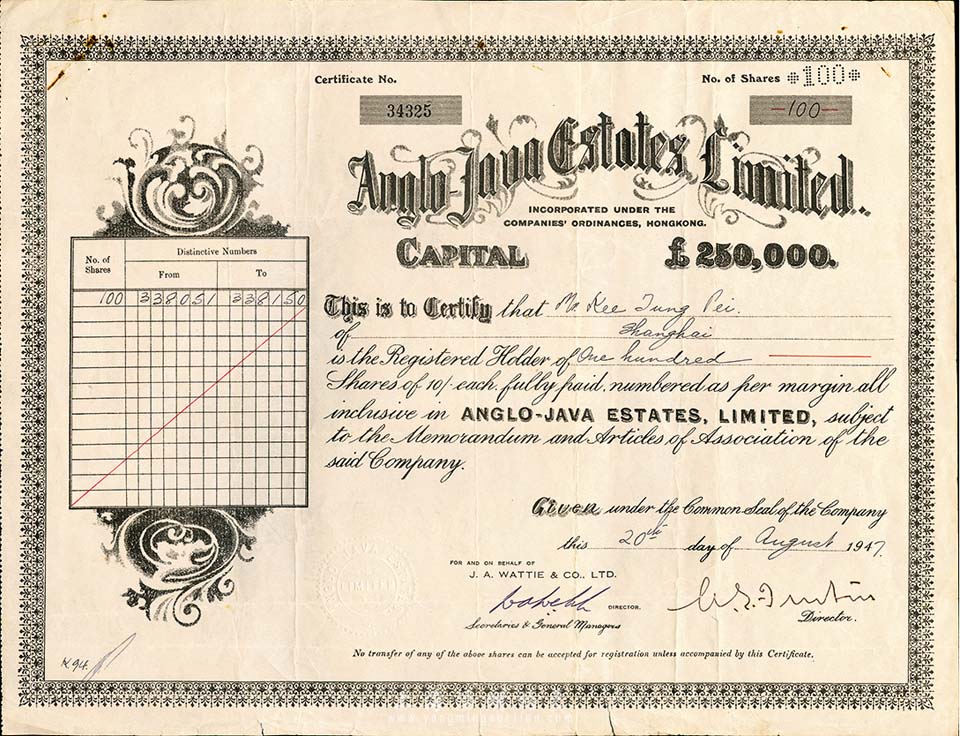 Certificate No.
34325
No. of Shares *100*
-100-
Anglo-Java Estates, Limited.
INCORPORATED UNDER THE
COMPANIES' ORDINANCES, HONGKONG.
CAPITAL £250,000.
No. of Shares
Distinctive Numbers
From To
100 338051 338150
This is to Certify that Mr. Kee Tung Pei.
of Shanghai
is the Registered Holder of One hundred
Shares of 10/- each, fully paid, numbered as per margin all
inclusive in ANGLO-JAVA ESTATES, LIMITED, subject
to the Memorandum and Articles of Association of the
said Company.
Given under the Common Seal of the Company
this 20th day of August 1947.
FOR AND ON BEHALF OF
J. A. WATTIE & CO., LTD.
DIRECTOR.
Secretaries & General Managers
Director.
No transfer of any of the above shares can be accepted for registration unless accompanied by this Certificate.